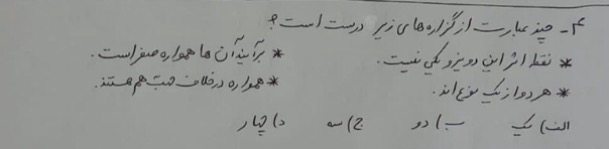 ۴- چند عبارت از گزاره های زیر درست است؟
* نقطه اثر این دو نیرو یکی نیست. * برآیند آن ها همواره صفر است.
* هر دو از یک نوع اند. * همواره در خلاف جهت هم هستند.
الف) یک ب) دو ج) سه د) چهار